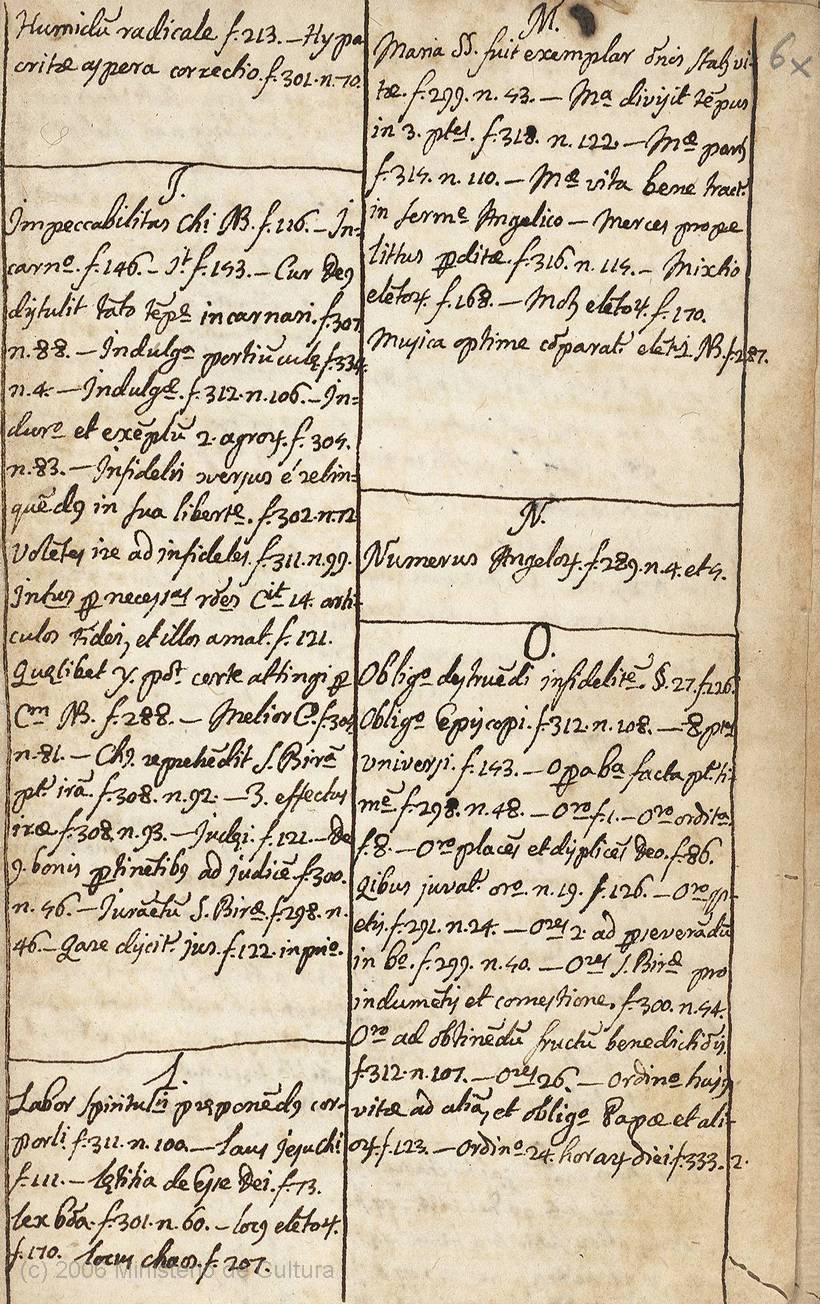 Humidū radicale f. 213. – Hypo
critæ aspera correctio. f. 301. n. 70.
I.
Impeccabilitas Chi NB. f. 116. – In-
carnº. f. 146. – It f. 153. – Cur Deꝯ
distulit tāto tēpe incarnari. f. 307.
n. 88. – Indulgª portiūculę f. 334.
n. 4. – Indulgæ. f. 312. n. 106. – In-
durº et exēplū 2. agroꝝ. f. 305.
n. 83. – Infidelis ... é relin-
quēdꝯ in sua liberte. f. 302. n. 72
Volētes ire ad infideles. f. 311. n. 99.
Intus ꝑ necessas rões ... 14. arti-
culos fidei, et illos amat. f. 121.
Quęlibet ... certe attingi ꝑ
... NB. f. 288. – Melior ... f. 305
n. 81. – Chꝯ. reprehēdit S. Birā
... irā. f. 308. n. 92. – 3. effectus
iræ f. 308. n. 93. – Judęi. f. 121. – De
9. bonis ꝑtinētibꝯ ad judicē f. 300.
n. 56. – Juramētū S. Biræ f. 298. n.
46. – Qare dijcit. jus. f. 122. in prio.
L.
Labor spiritulis pręponēdꝯ cor-
porli f. 311. n. 100. – Laus Jesuchi
f. 111. – Lętitia de Esse Dei. f. 73.
Lex ... f. 301. n. 60. – locꝯ elētoꝝ.
f. 170. locus chaos. f. 207.
M.
Maria SS. fuit exemplar ōnis ... vi-
tæ. f. 299. n. 53. – Mª divisit tēpus
in 3. ptes. f. 318. n. 122. – Mæ ...
f. 315. n. 110. – Mæ vita bene tract.
in serme Angelico – Merces prope
littus ꝑditæ. f. 316. n. 115. – Mixtio
elētoꝝ. f. 168. – Motꝯ elētoꝝ. f. 170.
Musica optime cōparat. ... NB. f. 287.
N.
Numerus Angeloꝝ. f. 289. n. 4. et 5.
O.
Obligº destruēdi infidelitē. §. 27. f. 126.
Obligº Episcopi. f. 312. n. 108. – 8 ptes
universi. f. 153. – ... facta ... ti-
mē f. 298. n. 48. – Orº f. 1. – Orº ordita.
f. 8. – Orº placēs et displicēs Deo. f. 86.
Qibus juvat. orº. n. 19. f. 126. – Orº ...
etis. f. 291. n. 24. – Ores 2. ad ꝑseverādū
in bº. f. 299. n. 50. – Ores S. Biræ pro
indumētis et comestione. f. 300. n. 54.
Orº ad obtinēdū fructū benedictiōis.
f. 312. n. 107. – Ores 26. – Ordinº hujꝯ
vitæ ad aliā, et obligº Papæ et ali-
oꝝ f. 123. – Ordinº 24. horaꝝ diei f. 333. n. 2.
6x
(c) 2006 Ministerio de Cultura